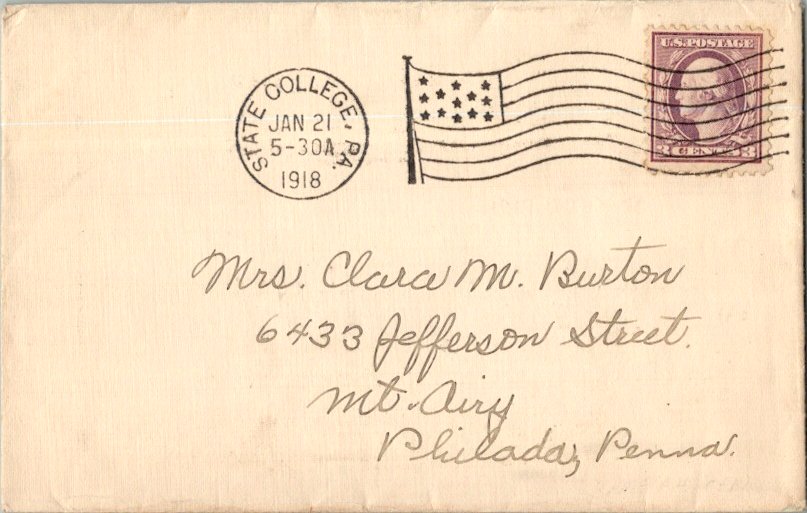 STATE COLLEGE, PA.
JAN 21
5-30A
1918
U.S. POSTAGE
3 CENTS 3
Mrs. Clara M. Burton
6433 Jefferson Street.
Mt. Airy
Philada, Penna.